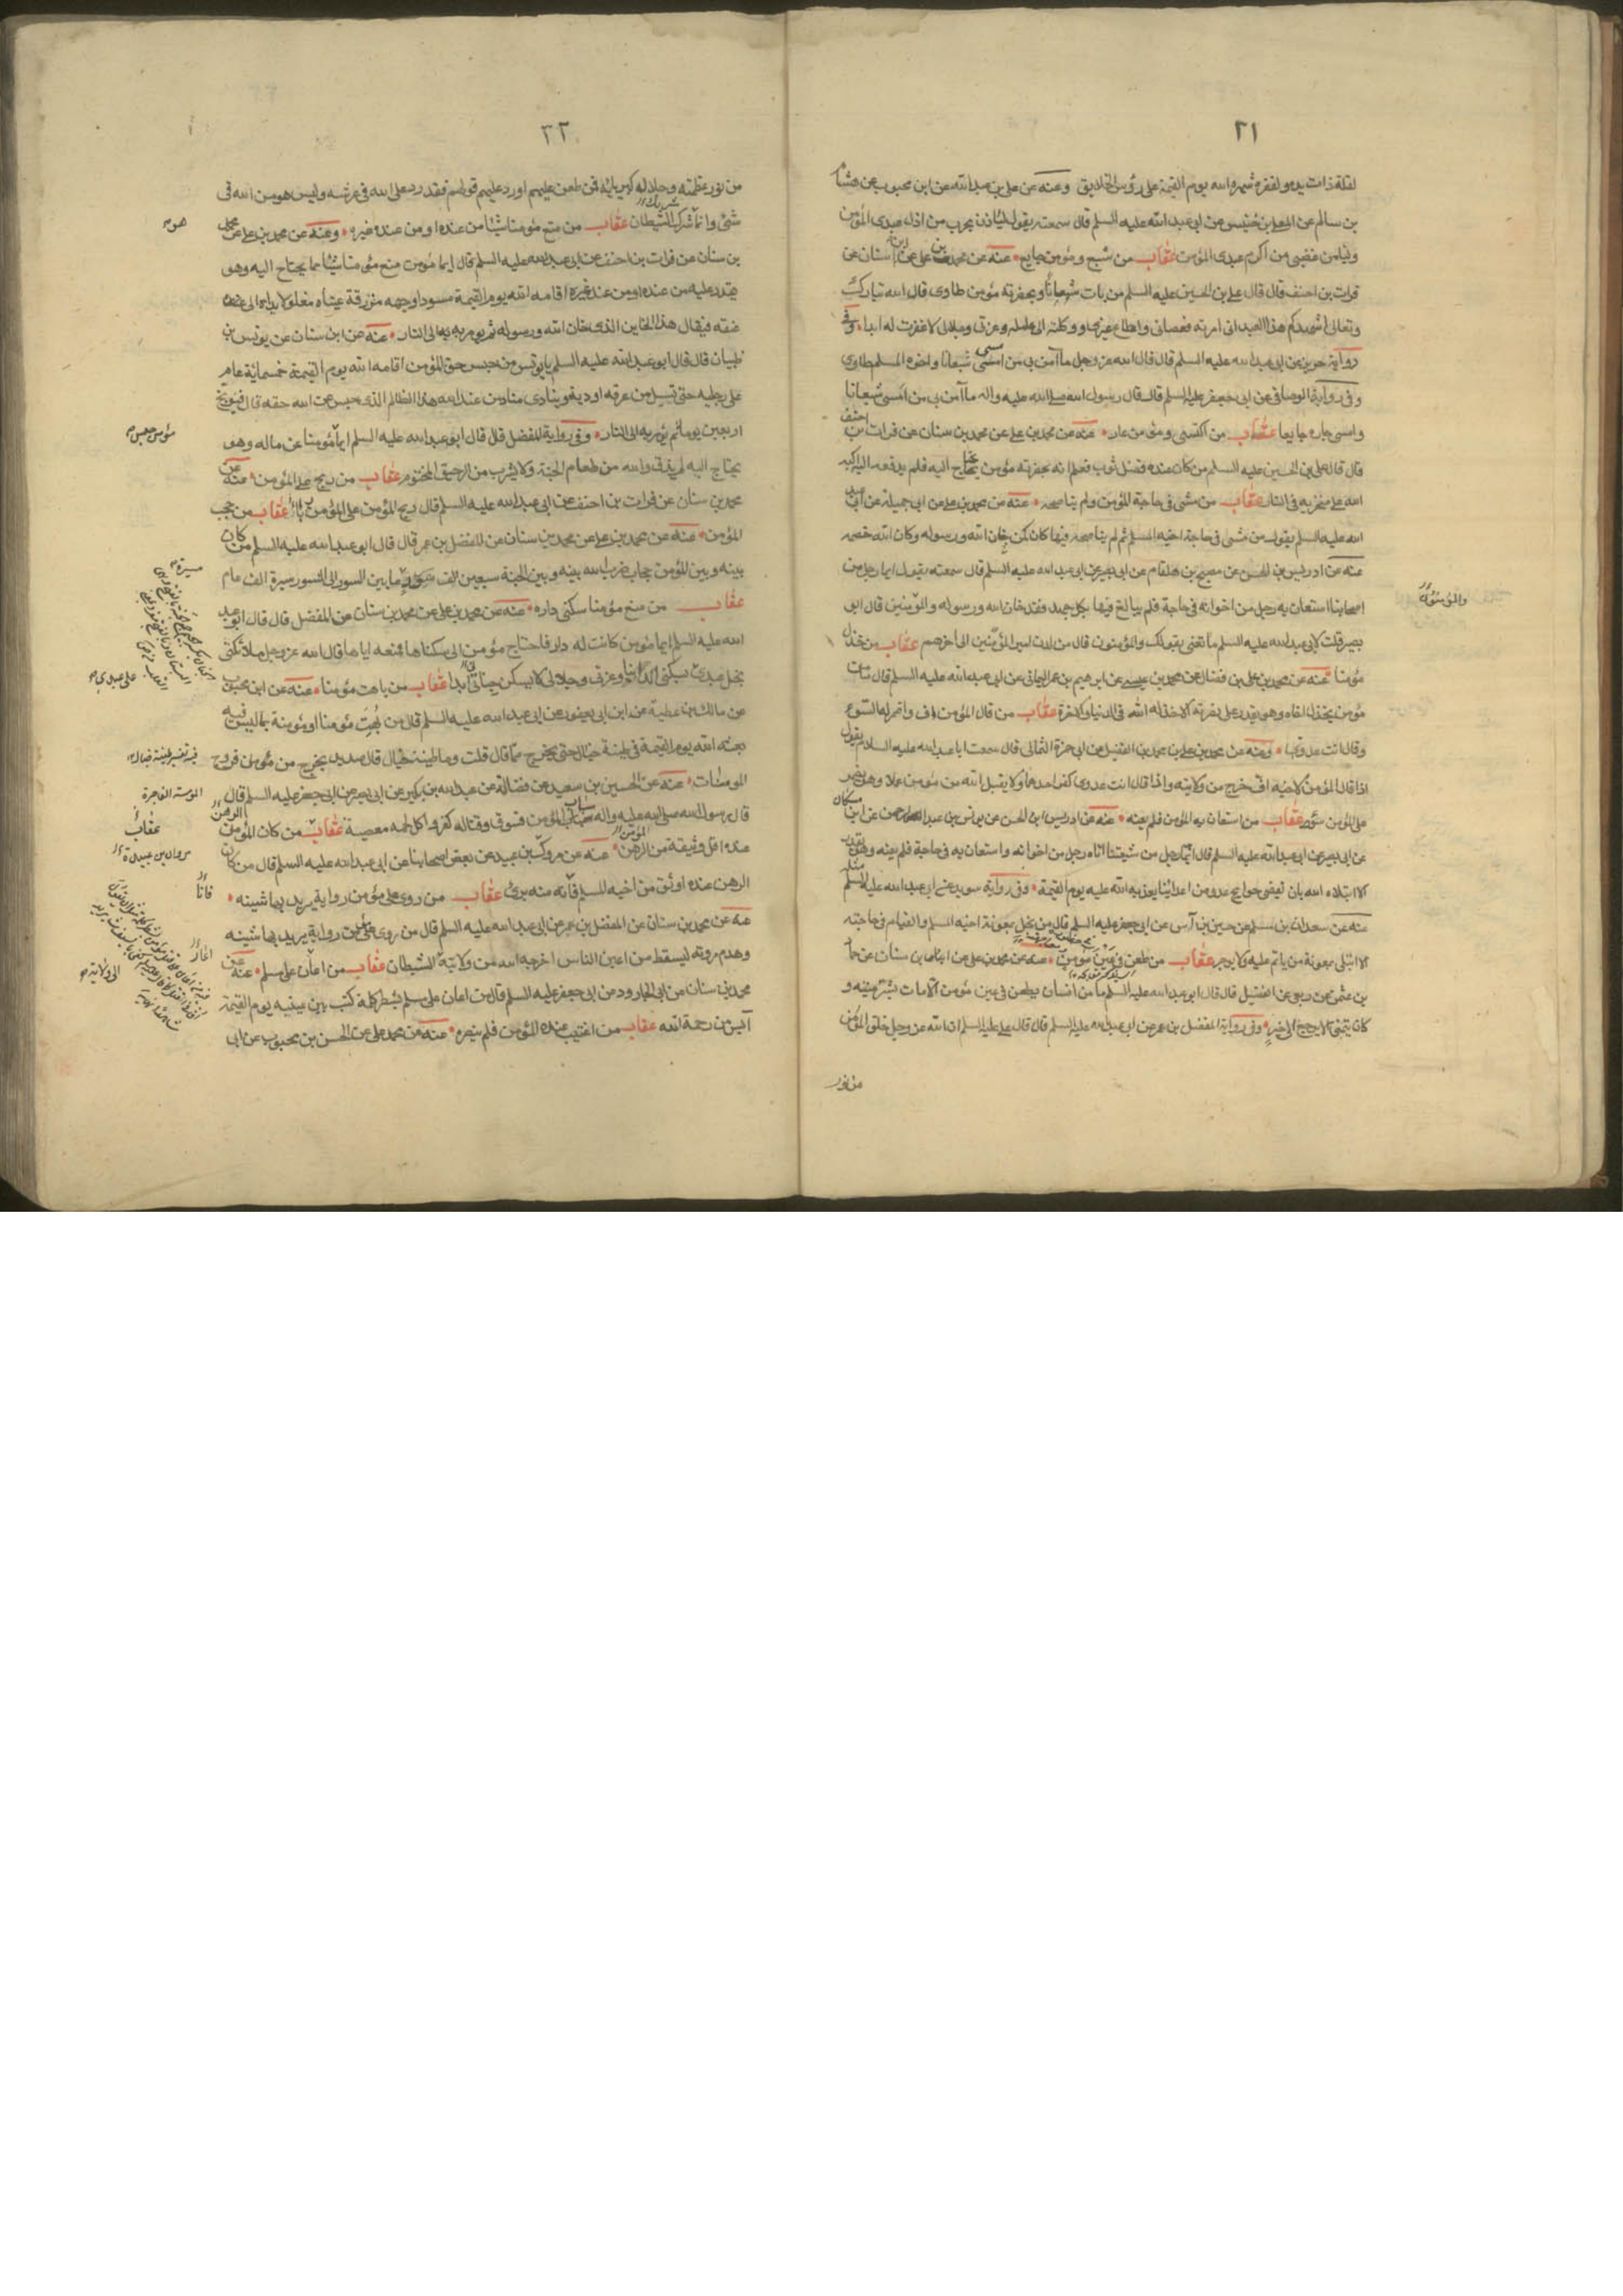 ٢١
لقلة ذات يده ولفقره شهره الله يوم القيمة على رؤس الخلايق وعنه عن علي بن عبدالله عن ابن محبوب عن هشام
بن سالم عن المعلى بن خنيس عن ابي عبد الله عليه السلم قال سمعته يقول لياذن بحرب من اذل عبدى المؤمن
وليامن غضبى من اكرم عبدى المؤمن عقاب من شبع ومؤمن جايع عنه عن محمد بن على عن ابن سنان عن
فرات بن احنف قال قال على بن الحسين عليه السلم من بات شبعانا وبحضرته مؤمن طاوى قال الله تبارك
وتعالى اشهدكم هذا العبد انى امرته فعصانى واطاع غيرى ووكلته الى عمله وعزتى وجلالى لا غفرت له ابدا وفى
رواية حريز عن ابى عبد الله عليه السلم قال قال الله عز وجل ما آمن بى من امسى شبعانا واخوه المسلم طاوى
وفى رواية الوصافى عن ابى جعفر عليه السلم قال قال رسول الله صلى الله عليه واله ما آمن بى من امسى شبعانا
وامسى جاره جايعا عقاب من اكتسى ومؤمن عار عنه عن محمد بن على عن محمد بن سنان عن فرات بن احنف
قال قال على بن الحسين عليه السلم من كان عنده فضل ثوب فعلم انه بحضرته مؤمن يحتاج اليه فلم يدفعه اليه اكبه
الله على منخريه فى النار عقاب من مشى فى حاجة المؤمن ولم يناصحه عنه عن محمد بن على عن ابى جميلة عن ابى عبد
الله عليه السلم يقول من مشى فى حاجة اخيه المسلم ثم لم يناصحه فيها كان كمن خان الله ورسوله وكان الله خصمه
عنه عن ادريس بن الحسن عن مصبح بن هلقام عن ابى بصير عن ابى عبد الله عليه السلم قال سمعته يقول ايما رجل من
اصحابنا استعان به رجل من اخوانه فى حاجة فلم يبالغ فيها بكل جهد فقد خان الله ورسوله والمؤمنين قال ابى
والمؤمنون
بصير قلت لابى عبد الله عليه السلم ما تعنى بقولك والمؤمنون قال من لدن امير المؤمنين الى آخرهم عقاب من خذل
مؤمنا عنه عن محمد بن على بن فضال عن محمد بن عيسى عن ابرهيم بن عمر اليمانى عن ابى عبد الله عليه السلم قال ما من
مؤمن يخذل اخاه وهو يقدر على نصرته الا خذله الله فى الدنيا والاخرة عقاب من قال المؤمن اف واضمر له السوء
وقال انت عدوى وعنه عن محمد بن على بن محمد بن الفضيل عن ابى حمزة الثمالى قال سمعت ابا عبد الله عليه السلام يقول
اذا قال المؤمن لاخيه اف خرج من ولايته واذا قال انت عدوى كفر احدهما ولا يقبل الله من مؤمن عملا وهو يضمر
على المؤمن سوء عقاب من استعان به المؤمن فلم يعنه عنه عن ادريس ابن الحسن عن يونس بن عبد الرحمن عن ابن مسكان
عن ابى بصير عن ابى عبد الله عليه السلم قال ايما رجل من شيعتنا اتاه رجل من اخوانه واستعان به فى حاجة فلم يعنه وهو يقدر
الا ابتلاه الله بان يقضى حوايج عدو من اعدائنا يعذبه الله عليه يوم القيمة وفى رواية سدير عن ابى عبد الله عليه السلم مثله
عنه عن سعدان بن مسلم عن حسين بن عن ابى جعفر عليه السلم قال من بخل بمعونة اخيه المسلم والقيام فى حاجته
الا ابتلى بمعونة من ياثم عليه ولا يوجر عقاب من طعن فى عين مؤمن عنه عن محمد بن على عن سنان عن حماد
بن عثمن عن ربعى عن الفضيل قال قال ابو عبد الله عليه السلم ما من انسان يطعن فى عين مؤمن الا مات بشر ميتة و
كان يتمنى الا يرجع الى خير وفى رواية المفضل بن عمر عن ابى عبد الله عليه السلم قال قال على عليه السلم ان الله عز وجل خلق المؤمن
من نور
٢٢
من نور عظمته وجلال كبريائه فمن طعن عليهم اورد عليهم قولهم فقد رد على الله فى عرشه وليس هو من الله فى
شئ وانما شرك الشيطان عقاب من منع مؤمنا شيئا من عنده او من عند غيره وعنه عن محمد بن على عن محمد
هو م
بن سنان عن فرات بن احنف عن ابى عبد الله عليه السلم قال ايما مؤمن منع مؤمنا شيئا مما يحتاج اليه وهو
يقدر عليه من عنده او من عند غيره اقامه الله يوم القيمة مسودا وجهه مزرقة عيناه مغلولا يداه الى عنقه
فيقال هذا الخاين الذى خان الله ورسوله ثم يومر به الى النار عنه عن ابن سنان عن يونس بن
ظبيان قال قال ابو عبد الله عليه السلم يا يونس من حبس حق المؤمن اقامه الله يوم القيمة خمسمائة عام
على رجليه حتى تسيل من عرقه اودية وينادى مناد من عند الله هذا الظالم الذى حبس عن الله حقه قال فيوبخ
اربعين يوما ثم يؤمر به الى النار وفى رواية المفضل قال قال ابو عبد الله عليه السلم ايما مؤمنا عن ماله وهو
مؤمن حبس م
يحتاج اليه لم يذق والله من طعام الجنة ولا يشرب من الرحيق المختوم عقاب من ربح على المؤمن عنه عن
محمد بن سنان عن فرات بن احنف عن ابى عبد الله عليه السلم قال ربح المؤمن على المؤمن ربا عقاب من حجب
المؤمن عنه عن محمد بن على عن محمد بن سنان عن المفضل بن عمر قال قال ابو عبد الله عليه السلم من كان
بينه وبين المؤمن حجاب ضرب الله بينه وبين الجنة سبعين الف سور ما بين السور الى السور مسيرة الف عام
مسيرة م
عقاب من منع مؤمنا سكنى داره عنه عن محمد بن على عن محمد بن سنان عن المفضل قال قال ابو عبد
الله عليه السلم ايما مؤمن كانت له دار فاحتاج مؤمن الى سكناها فمنعه اياها قال الله عز وجل ملائكتى
بخل عبدى بسكنى الدنيا وعزتى وجلالى لا يسكن جناتى ابدا عقاب من باهت مؤمنا عنه عن ابن محبوب
على عبدى م
عن مالك بن عطية عن ابن ابى يعفور عن ابى عبد الله عليه السلم قال من بهت مؤمنا او مؤمنة بما ليس فيه
بعثه الله يوم القيمة فى طينة خبال حتى يخرج مما قال قلت وما طينة خبال قال صديد يخرج من فروج
المومسات عنه عن الحسين بن سعيد عن فضالة عن عبد الله بن بكير عن ابى بصير عن ابى جعفر عليه السلم قال
المومسة الفاجرة
قال رسول الله صلى الله عليه واله سباب المؤمن فسوق وقتاله كفر واكل لحمه معصية عقاب من كان المؤمن
عقاب
عنده اقل وثيقة من الرهن عنه عن مروك بن عبيد عن بعض اصحابنا عن ابى عبد الله عليه السلم قال من كان
الرهن عنده اوثق من اخيه المسلم فانه منه برئ عقاب من روى على مؤمن رواية يريد بها شينه
عنه عن محمد بن سنان عن المفضل بن عمر عن ابى عبد الله عليه السلم قال من روى على مؤمن رواية يريد بها شينه
وهدم مروته ليسقط من اعين الناس اخرجه الله من ولايته الى الشيطان عقاب من اعان على مسلم عنه عن
محمد بن سنان عن ابى الجارود عن ابى جعفر عليه السلم قال من اعان على مسلم بشطر كلمة كتب بين عينيه يوم القيمة
آيس من رحمة الله عقاب من اغتيب عنده المؤمن فلم ينصره عنه عن محمد على عن الحسن بن محبوب عن ابى